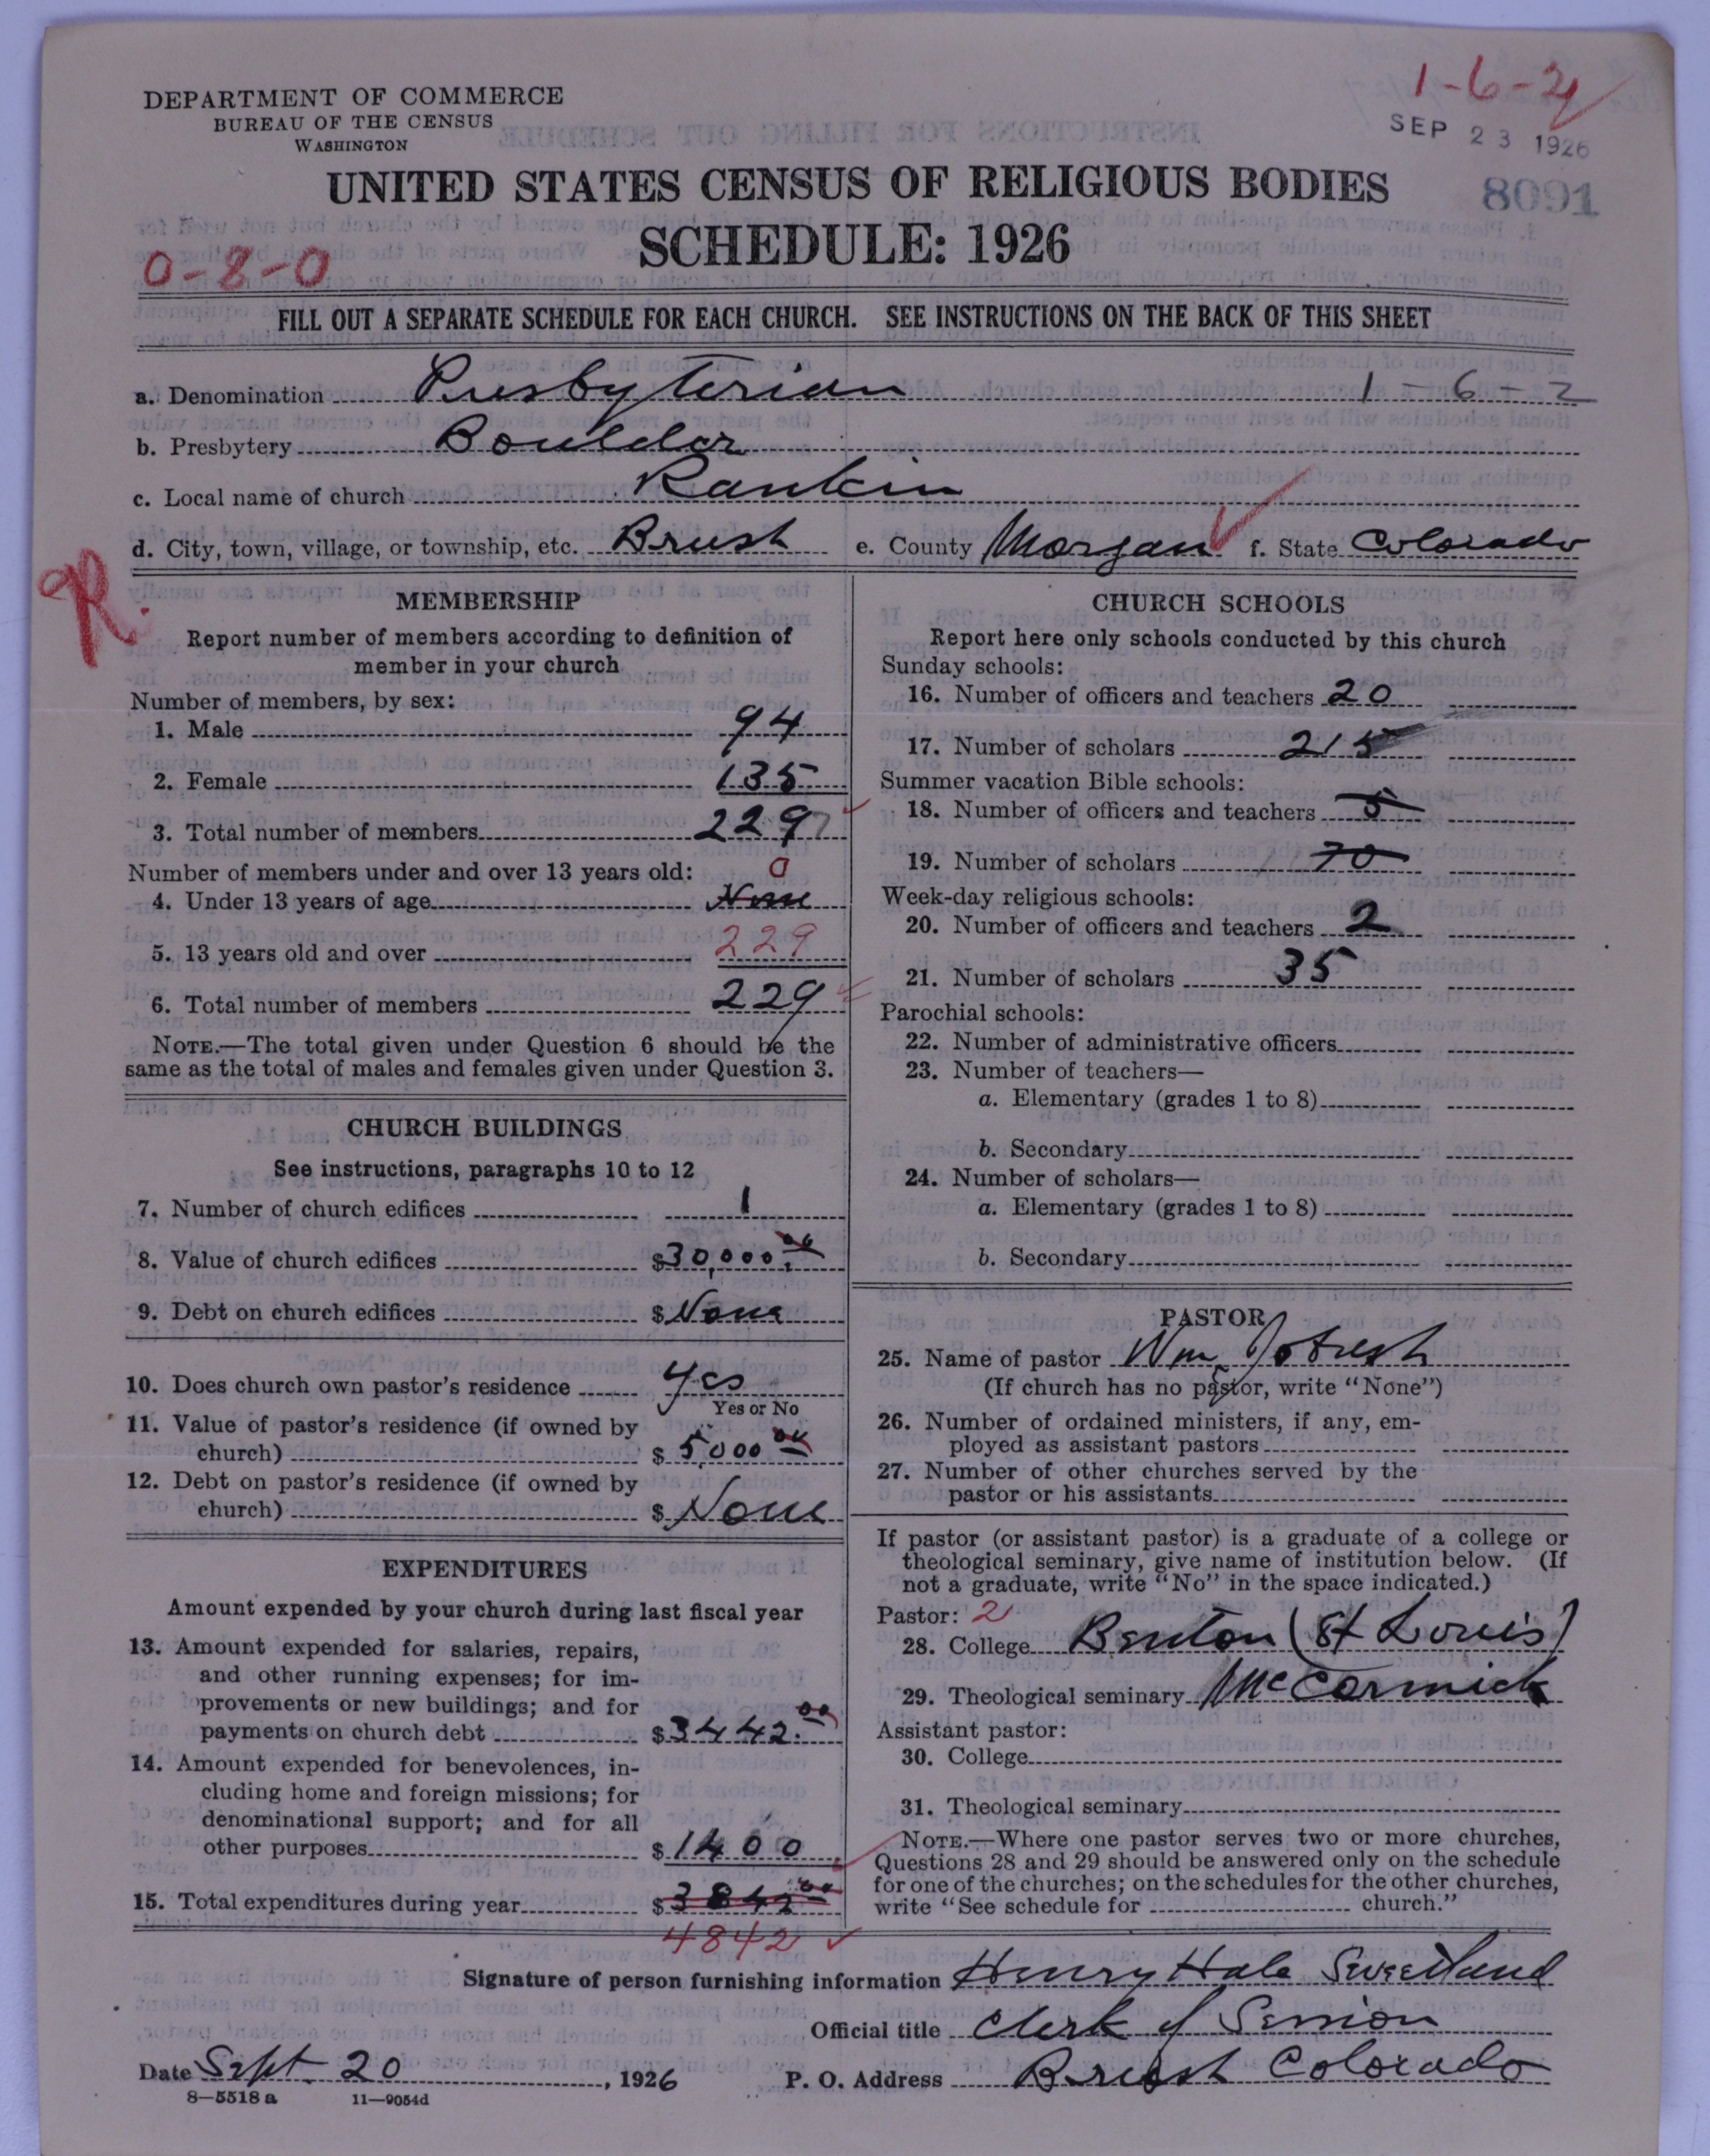 DEPARTMENT OF COMMERCE
BUREAU OF THE CENSUS
WASHINGTON
1-6-2
SEP 23 1926
8091
UNITED STATES CENSUS OF RELIGIOUS BODIES
SCHEDULE: 1926
0-8-0
FILL OUT A SEPARATE SCHEDULE FOR EACH CHURCH. SEE INSTRUCTIONS ON THE BACK OF THIS SHEET
a. Denomination Presbyterian 1-6-2
b. Presbytery Boulder
c. Local name of church Rankin
d. City, town, village, or township, etc. Brush e. County Morgan f. State Colorado
R.
MEMBERSHIP
Report number of members according to definition of
member in your church
Number of members, by sex:
1. Male 94
2. Female 135
3. Total number of members 229
Number of members under and over 13 years old: 0
4. Under 13 years of age None
5. 13 years old and over 229
6. Total number of members 229
NOTE.—The total given under Question 6 should be the
same as the total of males and females given under Question 3.
CHURCH BUILDINGS
See instructions, paragraphs 10 to 12
7. Number of church edifices 1
8. Value of church edifices $30,000.00
9. Debt on church edifices $None
10. Does church own pastor's residence Yes
Yes or No
11. Value of pastor's residence (if owned by
church) $5,000 00
12. Debt on pastor's residence (if owned by
church) $None
EXPENDITURES
Amount expended by your church during last fiscal year
13. Amount expended for salaries, repairs,
and other running expenses; for im-
provements or new buildings; and for
payments on church debt $3442.00
14. Amount expended for benevolences, in-
cluding home and foreign missions; for
denominational support; and for all
other purposes $1400
15. Total expenditures during year $3842 00
4842
CHURCH SCHOOLS
Report here only schools conducted by this church
Sunday schools:
16. Number of officers and teachers 20
17. Number of scholars 215
Summer vacation Bible schools:
18. Number of officers and teachers 5
19. Number of scholars 70
Week-day religious schools:
20. Number of officers and teachers 2
21. Number of scholars 35
Parochial schools:
22. Number of administrative officers
23. Number of teachers—
a. Elementary (grades 1 to 8)
b. Secondary
24. Number of scholars—
a. Elementary (grades 1 to 8)
b. Secondary
PASTOR
25. Name of pastor Wm.
(If church has no pastor, write "None")
26. Number of ordained ministers, if any, em-
ployed as assistant pastors
27. Number of other churches served by the
pastor or his assistants
If pastor (or assistant pastor) is a graduate of a college or
theological seminary, give name of institution below. (If
not a graduate, write "No" in the space indicated.)
Pastor: 2
28. College Benton (St Louis)
29. Theological seminary McCormick
Assistant pastor:
30. College
31. Theological seminary
NOTE.—Where one pastor serves two or more churches,
Questions 28 and 29 should be answered only on the schedule
for one of the churches; on the schedules for the other churches,
write "See schedule for church."
Signature of person furnishing information Henry Hale Sweetland
Official title Clerk of Session
Date Sept. 20, 1926 P. O. Address Brush Colorado
8—5518 a 11—9054d